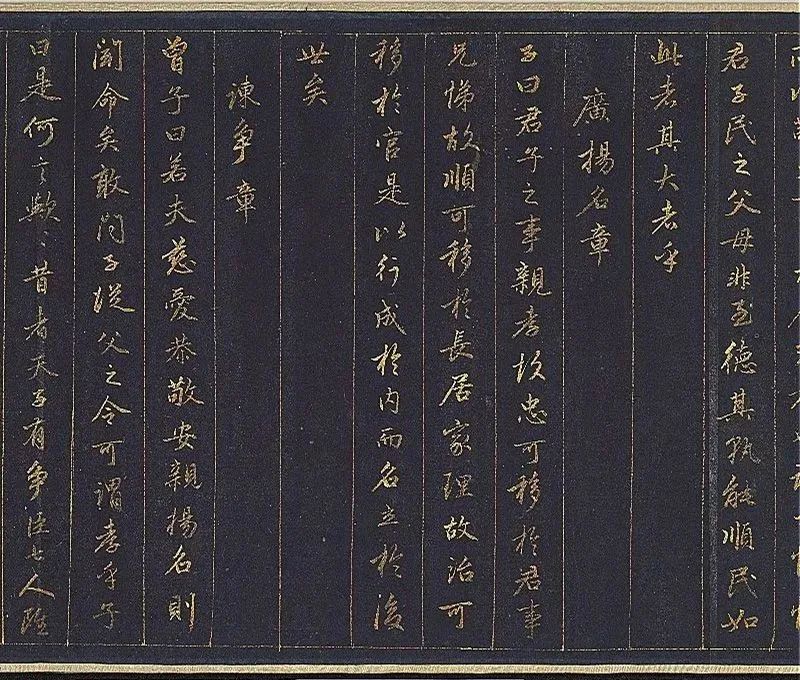 君子民之父母非至德其孰能順民如
此者其大者乎
廣揚名章
子曰君子之事親孝故忠可移於君事
兄悌故順可移於長居家理故治可
移於官是以行成於內而名立於後
世矣
諫争章
曾子曰若夫慈愛恭敬安親揚名則
聞命矣敢問子從父之令可謂孝乎子
曰是何言歟〻昔者天子有争臣七人雖